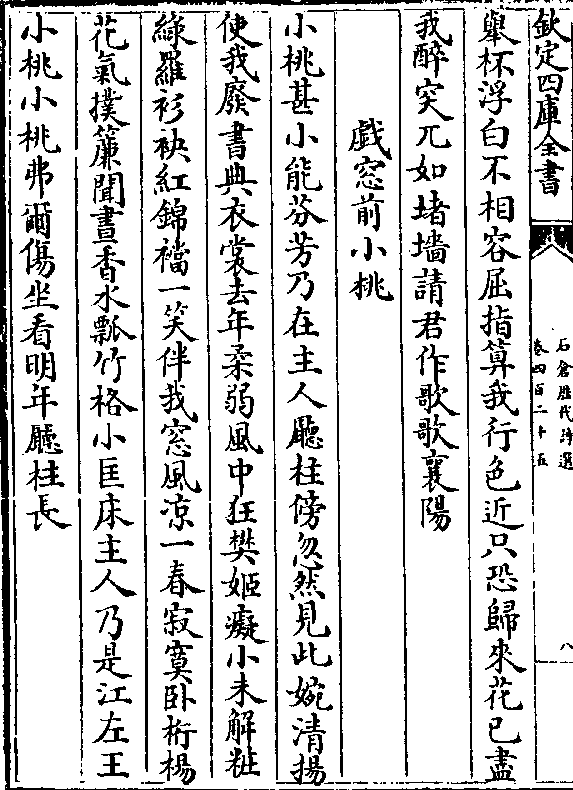 欽定四庫全書
石倉歷代詩選
卷四百二十五
八
舉杯浮白不相容屈指算我行色近只恐歸來花已盡
我醉突兀如堵墻請君作歌歌襄陽
戲窓前小桃
小桃甚小能芬芳乃在主人廳柱傍忽然見此婉清揚
使我廢書典衣裳去年柔弱風中狂樊姬癡小未解粧
綠羅衫袂紅錦襠一笑伴我窓風凉一春寂寞卧桁楊
花氣撲簾聞晝香水瓢竹格小匡床主人乃是江左王
小桃小桃弗爾傷坐看明年廳柱長